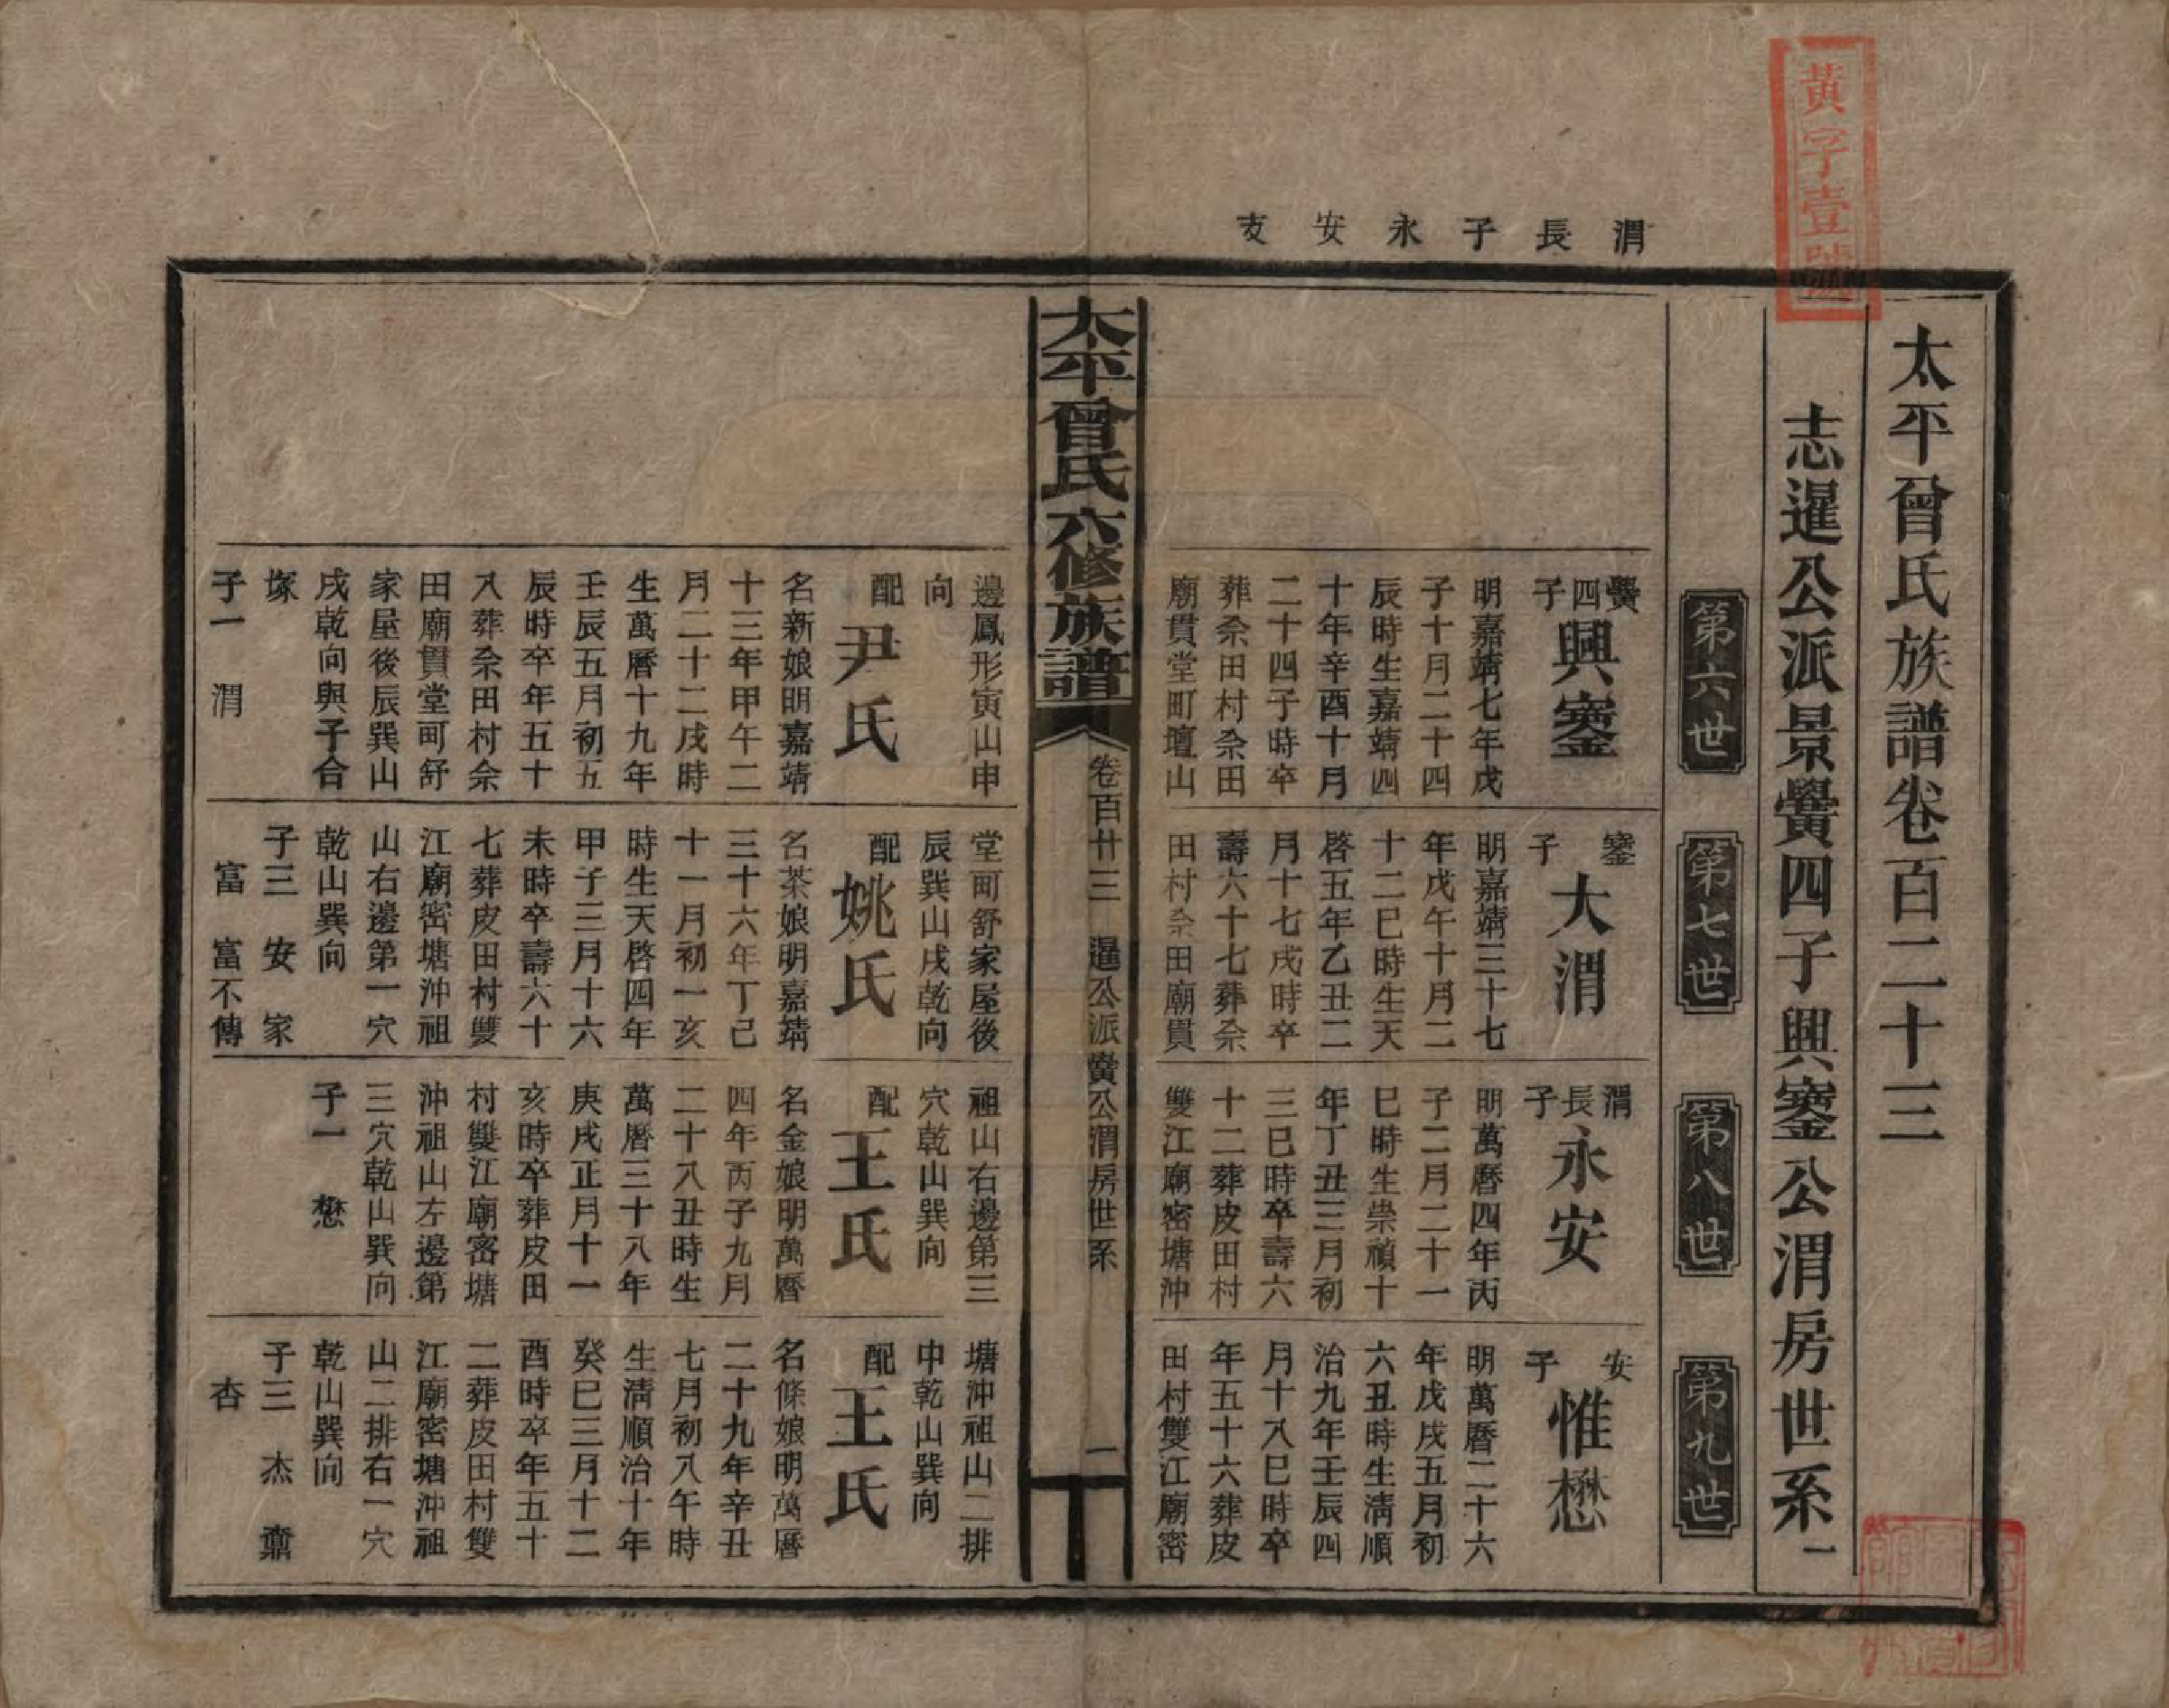 黃字壹號
渭長子永安支
太平曾氏族譜卷百二十三
志暹公派景黌四子興鑾公渭房世系一
第六世
第七世
第八世
第九世
黌四子
興鑾
明嘉靖七年戊
子十月二十四
辰時生嘉靖四
十年辛酉十月
二十四子時卒
葬佘田村佘田
廟貫堂町壇山
邊鳳形寅山申
向
配
尹氏
名新娘明嘉靖
十三年甲午二
月二十二戌時
生萬曆十九年
壬辰五月初五
辰時卒年五十
八葬佘田村佘
田廟貫堂町舒
家屋後辰巽山
戌乾向與子合
塚
子一 渭
鑾子
大渭
明嘉靖三十七
年戊午十月二
十二巳時生天
啓五年乙丑二
月十七戌時卒
壽六十七葬佘
田村佘田廟貫
堂町舒家屋後
辰巽山戌乾向
配
姚氏
名茶娘明嘉靖
三十六年丁巳
十一月初一亥
時生天啓四年
甲子三月十六
未時卒壽六十
七葬皮田村雙
江廟密塘沖祖
山右邊第一穴
乾山巽向
子三 安 家
富 富不傳
渭長子
永安
明萬曆四年丙
子二月二十一
巳時生崇禎十
年丁丑三月初
三巳時卒壽六
十二葬皮田村
雙江廟密塘沖
祖山右邊第三
穴乾山巽向
配
王氏
名金娘明萬曆
四年丙子九月
二十八丑時生
萬曆三十八年
庚戌正月十一
亥時卒葬皮田
村雙江廟密塘
沖祖山左邊第
三穴乾山巽向
子一 懋
安子
惟懋
明萬曆二十六
年戊戌五月初
六丑時生清順
治九年壬辰四
月十八巳時卒
年五十六葬皮
田村雙江廟密
塘沖祖山二排
中乾山巽向
配
王氏
名條娘明萬曆
二十九年辛丑
七月初八午時
生清順治十年
癸巳三月十二
酉時卒年五十
二葬皮田村雙
江廟密塘沖祖
山二排右一穴
乾山巽向
子三 杰 鼐
杏
太平曾氏六修族譜
卷百廿三 暹公派黌公渭房世系
一